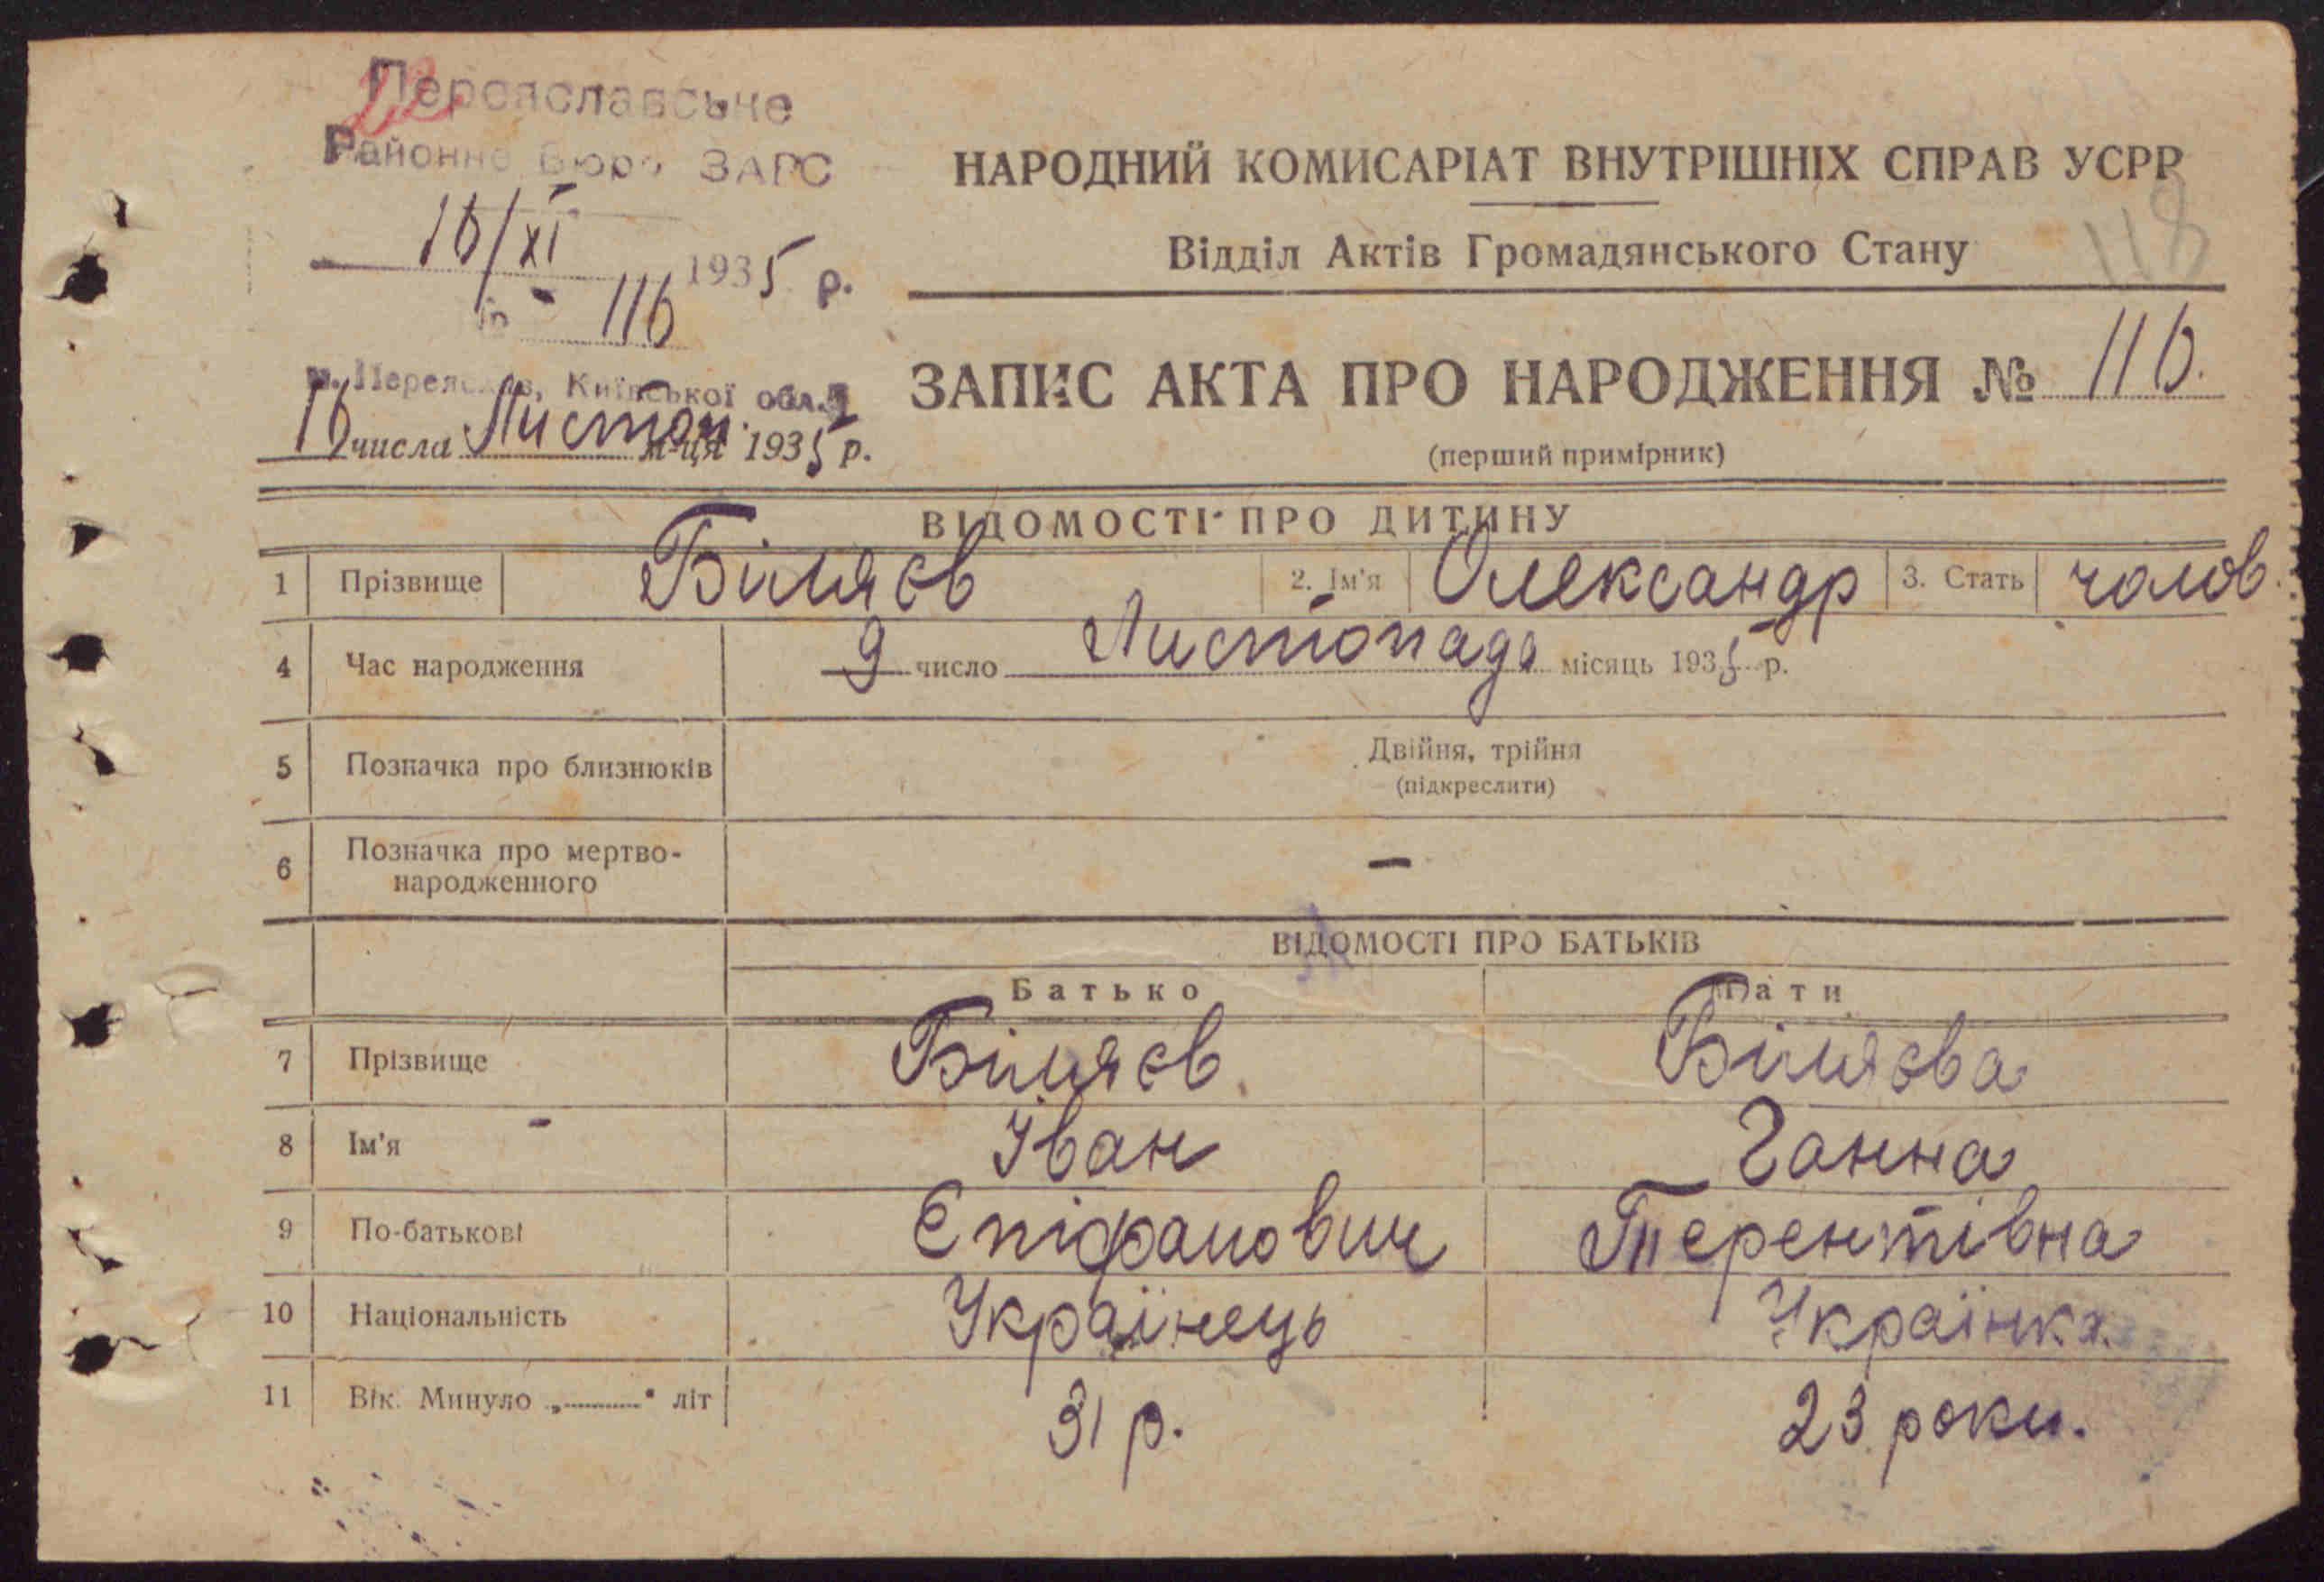 22
Переяславське
Районне Бюро ЗАГС
16/XI 1935 р.
№ 116
м. Переяслав, Київської обл.
16 числа Листоп. м-ця 1935 р.
НАРОДНИЙ КОМИСАРІАТ ВНУТРІШНІХ СПРАВ УСРР
118
Відділ Актів Громадянського Стану
ЗАПИС АКТА ПРО НАРОДЖЕННЯ № 116.
(перший примірник)
ВІДОМОСТІ ПРО ДИТИНУ
1 Прізвище Біляєв 2. Ім'я Олександр 3. Стать чолов.
4 Час народження 9 число Листопада місяць 1935 р.
5 Позначка про близнюків Двійня, трійня
(підкреслити)
6 Позначка про мертво-
народженного —
ВІДОМОСТІ ПРО БАТЬКІВ
Батько Мати
7 Прізвище Біляєв Біляєва
8 Ім'я Іван Ганна
9 По-батькові Єпіфанович Терентівна
10 Національність Українець Українка.
11 Вік. Минуло „ " літ 31 р. 23 роки.